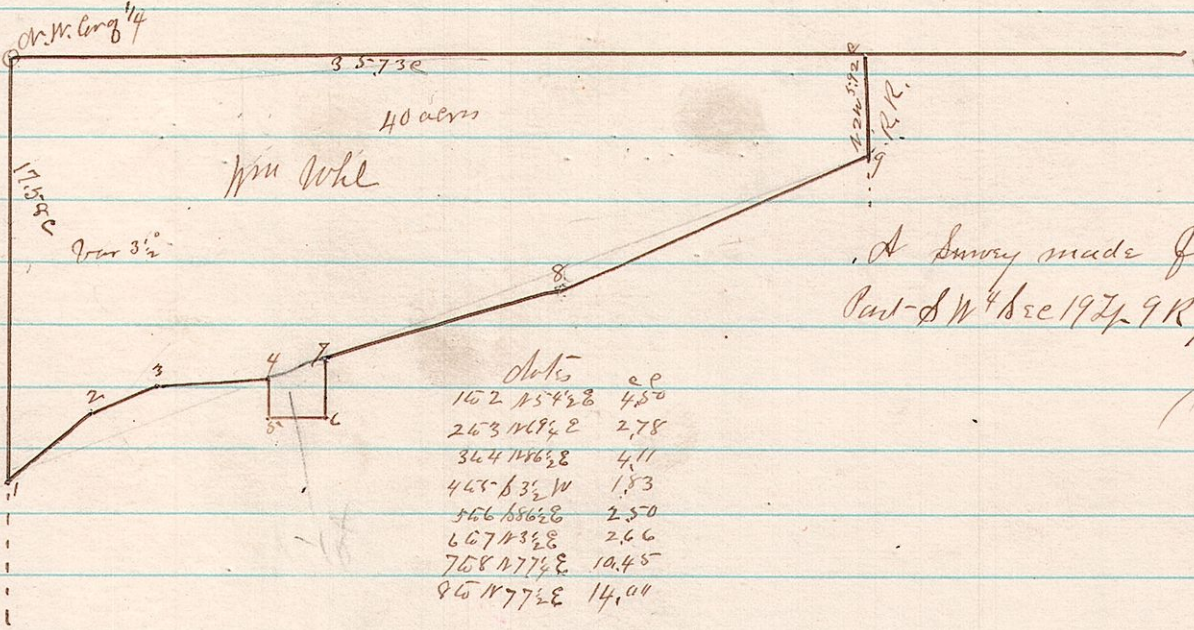 N.W. Cor 1/4
35.73c
N 2 W 5.92 c
R.R.
40 acres
Wm Uhl
17.58c
Var 3½°
9
8
A Survey made f
Part S W 4 Sec 19 Tp 9 R
7
4
3
2
5
6
1
Notes
c l
1 to 2 N54½E 4,50
2 to 3 N69¼E 2,78
3 to 4 N86½E 4,11
4 to 5 S3½W 1,83
5 to 6 S86½E 2,50
6 to 7 N3½E 2,66
7 to 8 N77¼E 10,45
8 to N77½E 14,00